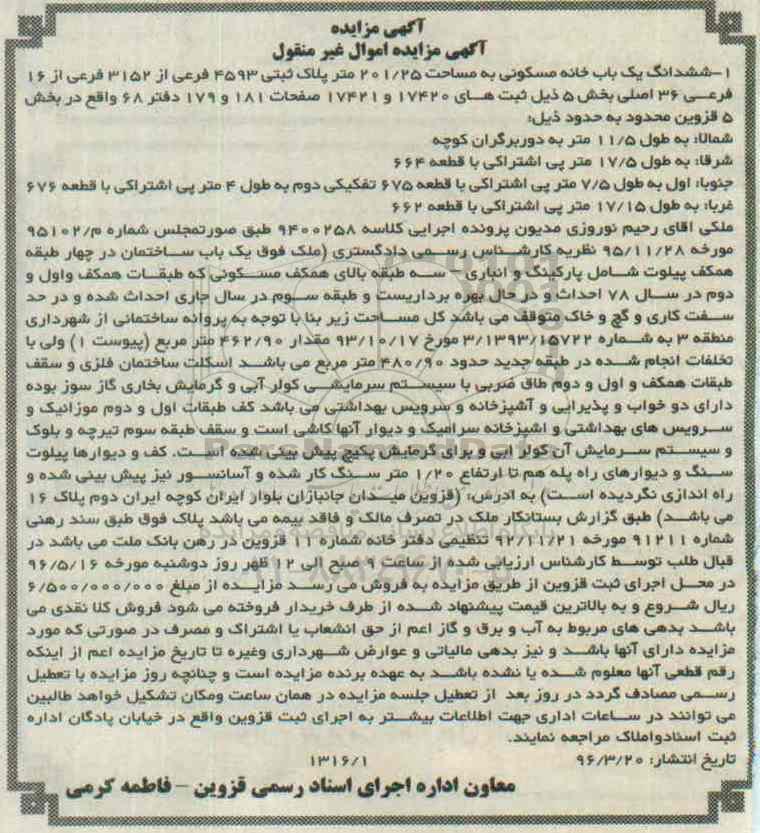 آگهی مزایده
آگهی مزایده اموال غیر منقول
۱-ششدانگ یک باب خانه مسکونی به مساحت ۲۰۱/۲۵ متر پلاک ثبتی ۴۵۹۳ فرعی از ۳۱۵۲ فرعی از ۱۶
فرعی ۳۶ اصلی بخش ۵ ذیل ثبت های ۱۷۴۲۰ و ۱۷۴۲۱ صفحات ۱۸۱ و ۱۷۹ دفتر ۶۸ واقع در بخش
۵ قزوین محدود به حدود ذیل:
شمالا: به طول ۱۱/۵ متر به دوربرگران کوچه
شرقا: به طول ۱۷/۵ متر پی اشتراکی با قطعه ۶۶۴
جنوبا: اول به طول ۷/۵ متر پی اشتراکی با قطعه ۶۷۵ تفکیکی دوم به طول ۴ متر پی اشتراکی با قطعه ۶۷۶
غربا: به طول ۱۷/۱۵ متر پی اشتراکی با قطعه ۶۶۲
ملکی اقای رحیم نوروزی مدیون پرونده اجرایی کلاسه ۹۴۰۰۲۵۸ طبق صورتمجلس شماره م/۹۵۱۰۲
مورخه ۹۵/۱۱/۲۸ نظریه کارشناس رسمی دادگستری (ملک فوق یک باب ساختمان در چهار طبقه
همکف پیلوت شامل پارکینگ و انباری- سه طبقه بالای همکف مسکونی که طبقات همکف واول و
دوم در سال ۷۸ احداث و در حال بهره برداریست و طبقه سوم در سال جاری احداث شده و در حد
سفت کاری و گچ و خاک متوقف می باشد کل مساحت زیر بنا با توجه به پروانه ساختمانی از شهرداری
منطقه ۳ به شماره ۳/۱۳۹۳/۱۵۷۲۲ مورخ ۹۳/۱۰/۱۷ مقدار ۴۶۲/۹۰ متر مربع (پیوست ۱) ولی با
تخلفات انجام شده در طبقه جدید حدود ۴۸۰/۹۰ متر مربع می باشد اسکلت ساختمان فلزی و سقف
طبقات همکف و اول و دوم طاق ضربی با سیستم سرمایشی کولر آبی و گرمایش بخاری گاز سوز بوده
دارای دو خواب و پذیرایی و آشپزخانه و سرویس بهداشتی می باشد کف طبقات اول و دوم موزائیک و
سرویس های بهداشتی و اشپزخانه سرامیک و دیوار آنها کاشی است و سقف طبقه سوم تیرچه و بلوک
و سیستم سرمایش آن کولر ابی و برای گرمایش پکیج پیش بینی شده است. کف و دیوارها پیلوت
سنگ و دیوارهای راه پله هم تا ارتفاع ۱/۲۰ متر سنگ کار شده و آسانسور نیز پیش بینی شده و
راه اندازی نگردیده است) به ادرس: (قزوین میدان جانبازان بلوار ایران کوچه ایران دوم پلاک ۱۶
می باشد) طبق گزارش بستانکار ملک در تصرف مالک و فاقد بیمه می باشد پلاک فوق طبق سند رهنی
شماره ۹۱۲۱۱ مورخه ۹۲/۱۱/۲۱ تنظیمی دفتر خانه شماره ۱۱ قزوین در رهن بانک ملت می باشد در
قبال طلب توسط کارشناس ارزیابی شده از ساعت ۹ صبح الی ۱۲ ظهر روز دوشنبه مورخه ۹۶/۵/۱۶
در محل اجرای ثبت قزوین از طریق مزایده به فروش می رسد مزایده از مبلغ ۶/۵۰۰/۰۰۰/۰۰۰
ریال شروع و به بالاترین قیمت پیشنهاد شده از طرف خریدار فروخته می شود فروش کلا نقدی می
باشد بدهی های مربوط به آب و برق و گاز اعم از حق انشعاب یا اشتراک و مصرف در صورتی که مورد
مزایده دارای آنها باشد و نیز بدهی مالیاتی و عوارض شهرداری وغیره تا تاریخ مزایده اعم از اینکه
رقم قطعی آنها معلوم شده یا نشده باشد به عهده برنده مزایده است و چنانچه روز مزایده با تعطیل
رسمی مصادف گردد در روز بعد از تعطیل جلسه مزایده در همان ساعت ومکان تشکیل خواهد طالبین
می توانند در ساعات اداری جهت اطلاعات بیشتر به اجرای ثبت قزوین واقع در خیابان پادگان اداره
ثبت اسنادواملاک مراجعه نمایند.
تاریخ انتشار: ۹۶/۳/۲۰ ۱۳۱۶/۱
معاون اداره اجرای اسناد رسمی قزوین - فاطمه کرمی